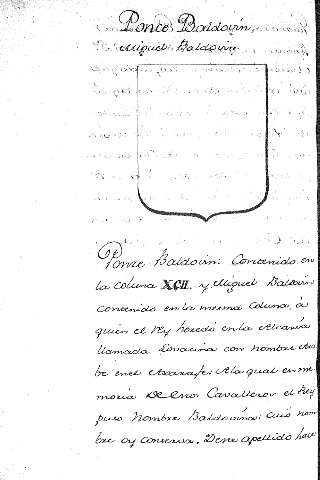 Ponce Baldovin,
Miguel Baldovin.
Ponce Baldovin: Contenido en
la coluna XCII. y Miguel Baldovin
contenido en la misma Coluna, á
quien el Rey heredó en la
llamada con nombre Ara
be en el Axarafe: A la qual en me
moria De esos Cavalleros el Rey
puso Nombre Baldovina: cuio nom
bre oy conserva. Deste apellido hace